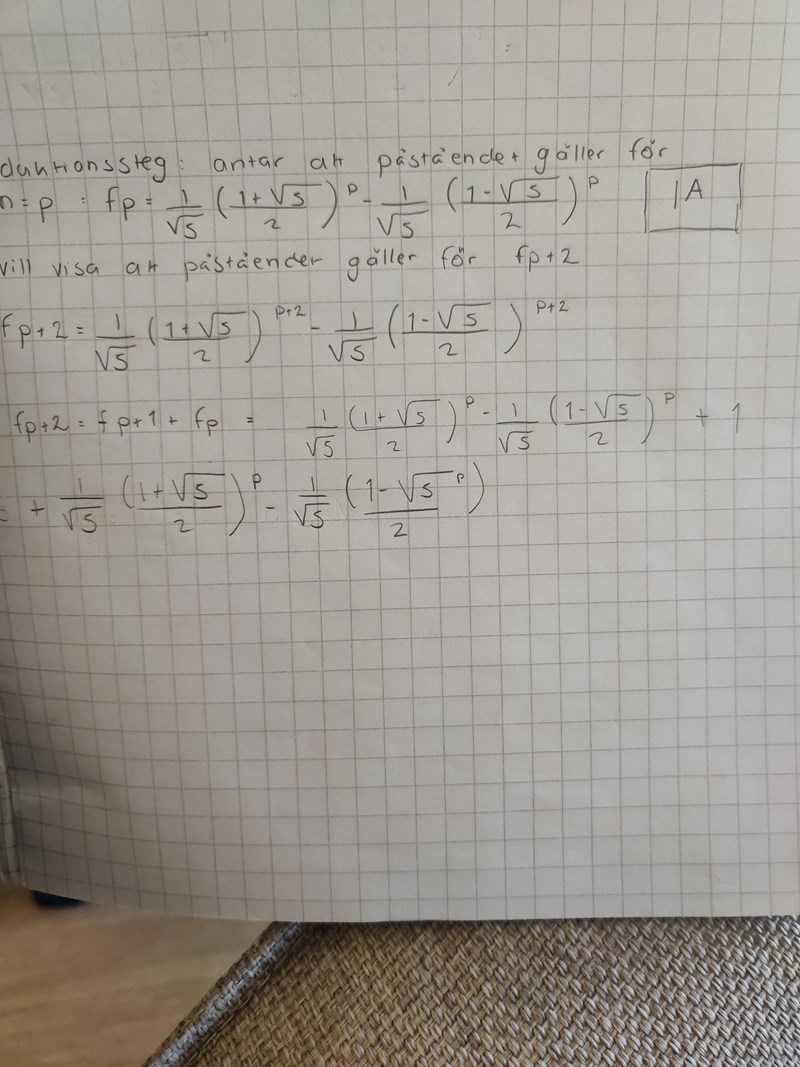 duktionssteg: antar att påståendet gäller för
n = p : fp = 1/√5 ((1+√5)/2)^p - 1/√5 ((1-√5)/2)^p IA
vill visa att påståender gäller för fp+2
fp+2 = 1/√5 ((1+√5)/2)^p+2 - 1/√5 ((1-√5)/2)^p+2
fp+2 = fp+1 + fp = 1/√5 ((1+√5)/2)^p - 1/√5 ((1-√5)/2)^p + 1
= + 1/√5 ((1+√5)/2)^p - 1/√5 ((1-√5^p)/2)